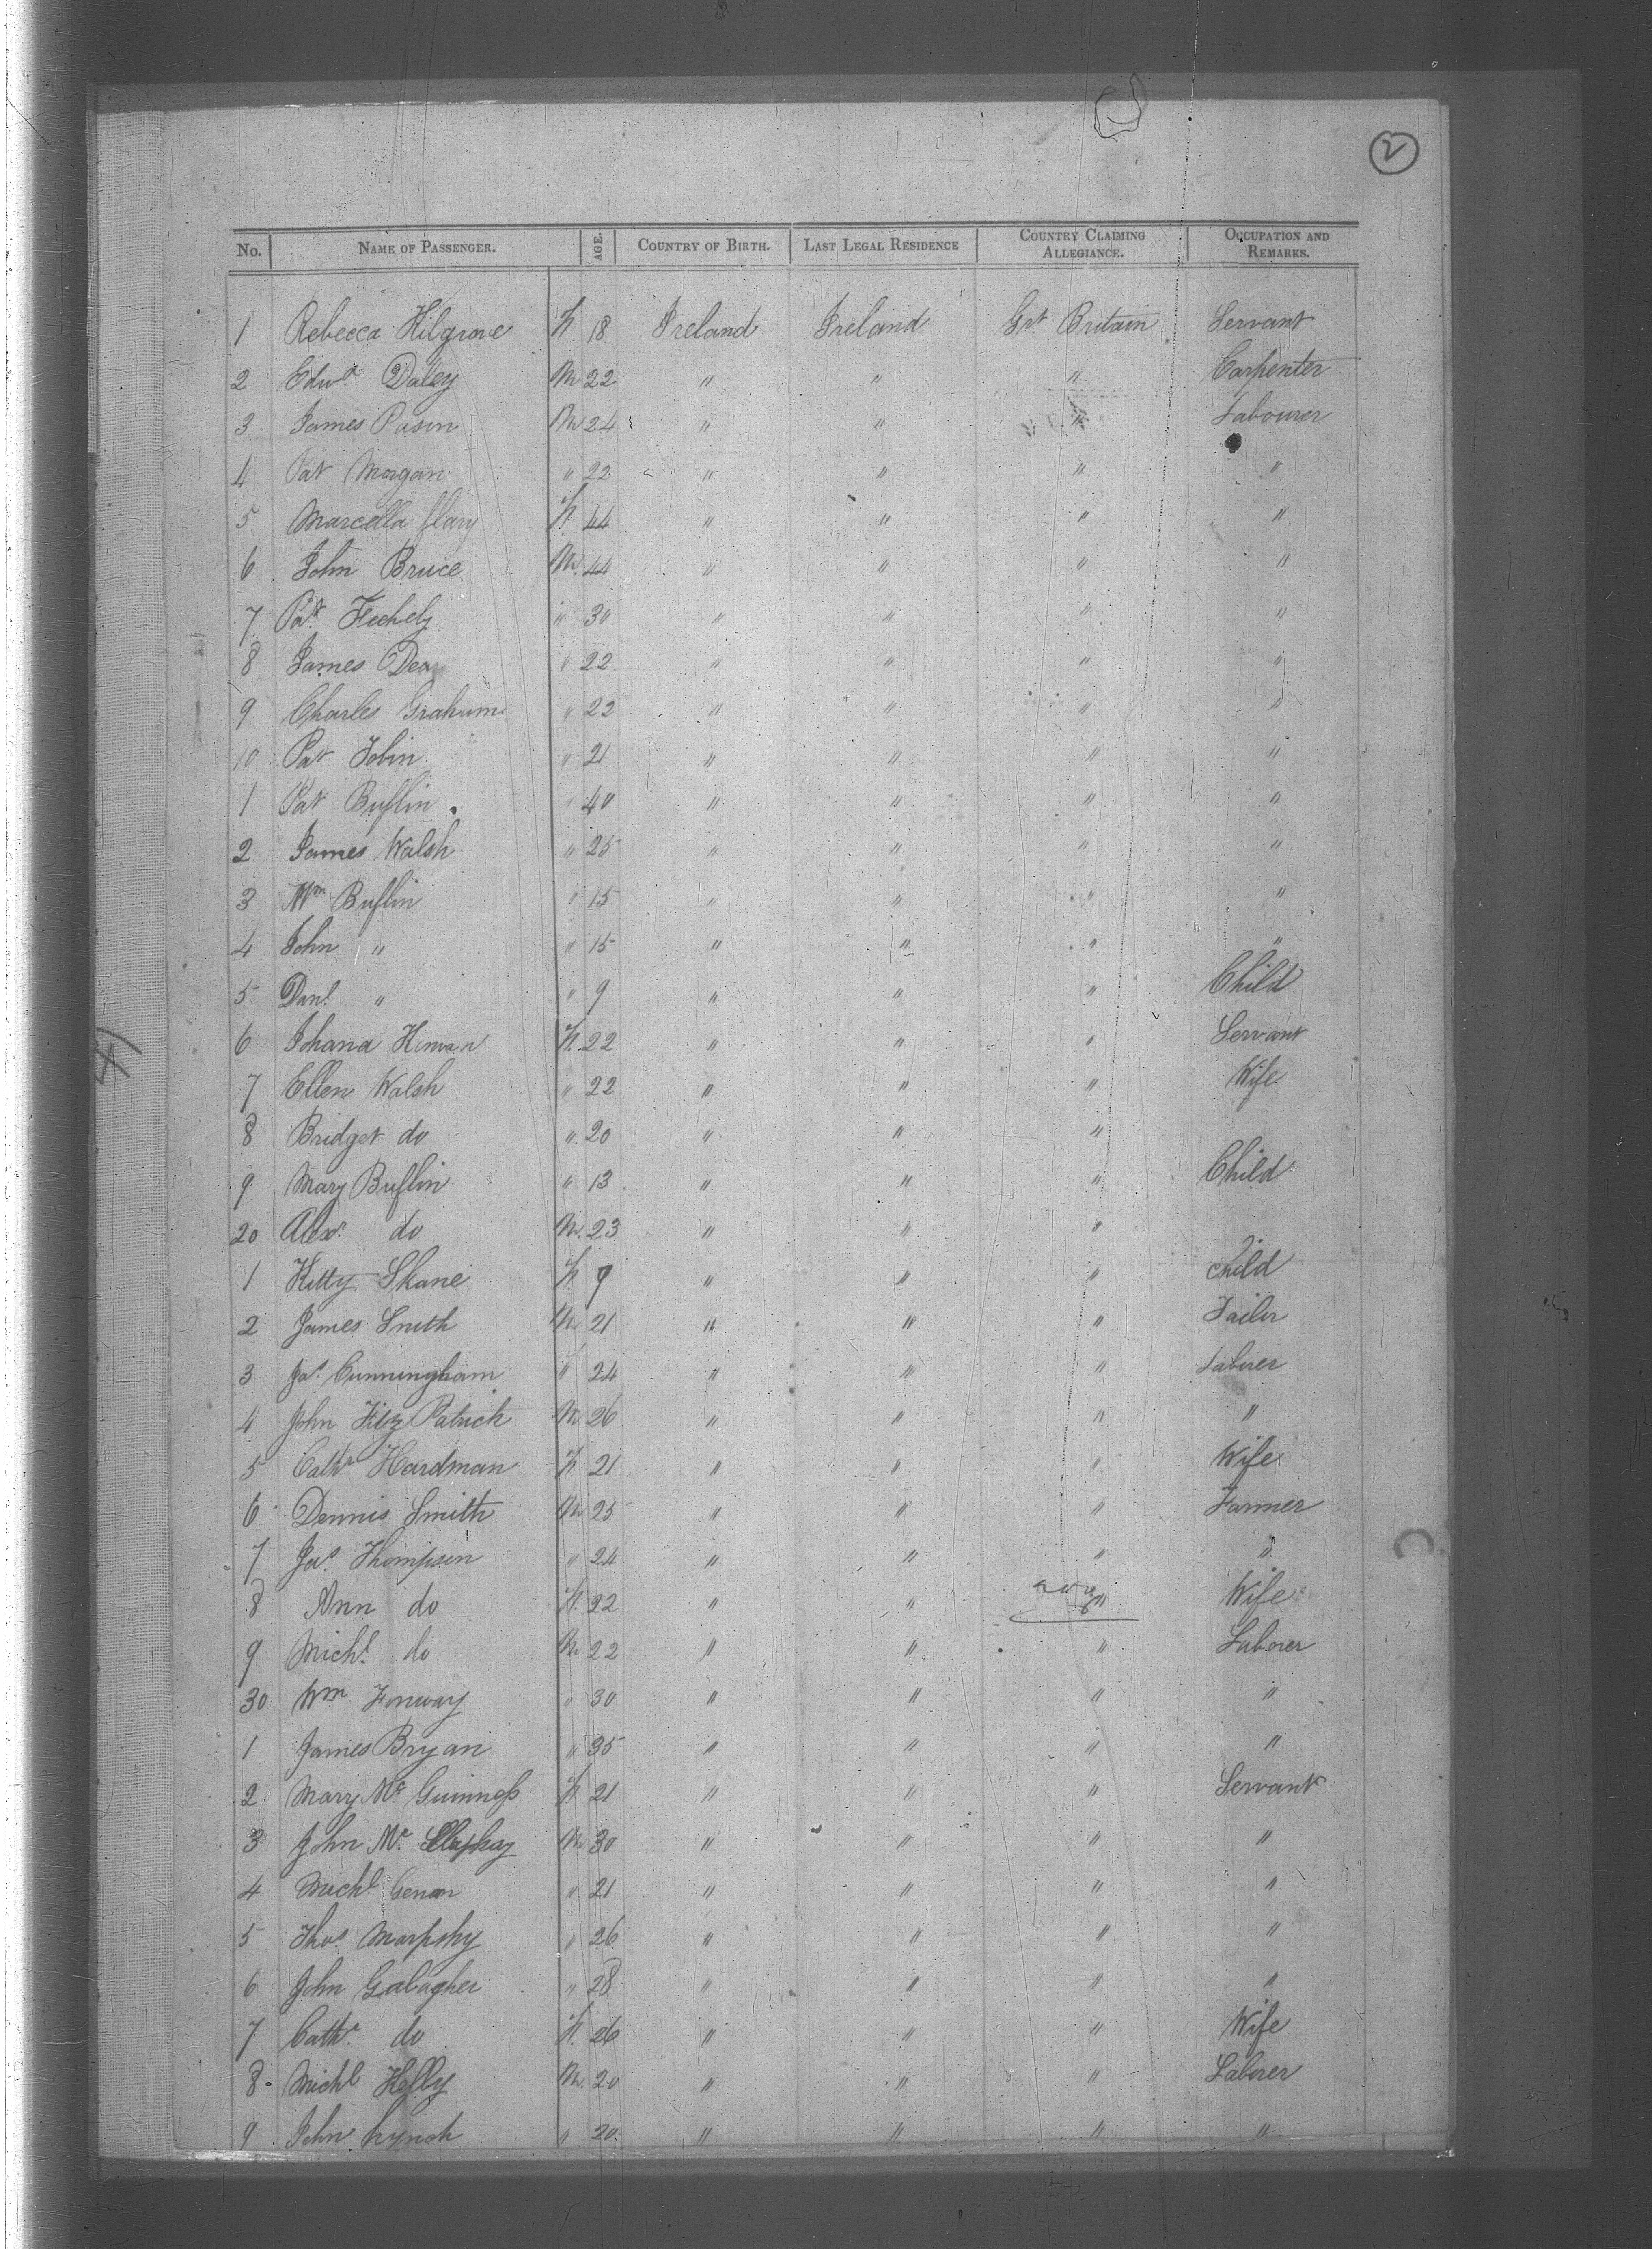 2
No. NAME OF PASSENGER. AGE. COUNTRY OF BIRTH. LAST LEGAL RESIDENCE COUNTRY CLAIMING ALLEGIANCE. OCCUPATION AND REMARKS.
1 Rebecca Kilgrove F. 18 Ireland Ireland Grt Britain Servant
2 Edwd Daley M 22 " " " Carpenter
3 James M 24 " " " Labourer
4 Pat Morgan " 22 " " " "
5 Marcella F. 44 " " " "
6 John Bruce M. 44 " " " "
7 Pat. " 30 " " " "
8 James " 22 " " " "
9 Charles Graham " 22 " " " "
10 Pat Tobin " 21 " " " "
1 Pat Buflin " 40 " " " "
2 James Walsh " 25 " " " "
3 Wm Buflin " 15 " " " "
4 John " " 15 " " " "
5 Danl. " " 9 " " " Child
6 Johana F. 22 " " " Servant
7 Ellen Walsh " 22 " " " Wife
8 Bridget do " 20 " " "
9 Mary Buflin " 13 " " " Child
20 Alexr. do M. 23 " " "
1 Kitty Skane F. 9 " " " child
2 James Smith M 21 " " " Tailor
3 Jas. Cunningham " 24 " " " Laborer
4 John Fitz Patrick M 26 " " " "
5 Cathe Hardman F. 21 " " " Wife
6 Dennis Smith M 25 " " " Farmer
7 Jas. Thompson " 24 " " " "
8 Ann do F. 22 " " " Wife
9 Michl. do M 22 " " " Laborer
30 Wm " 30 " " " "
1 James Bryan " 35 " " " "
2 Mary Mc Guinness F. 21 " " " Servant
3 John Mc M 30 " " " "
4 Michl " 21 " " " "
5 Thos. " 26 " " " "
6 John Galagher " 28 " " " "
7 Cathe. do F. 26 " " " Wife
8 Michl Kelly M. 20 " " " Laborer
9 John Lynch " 20 " " " "